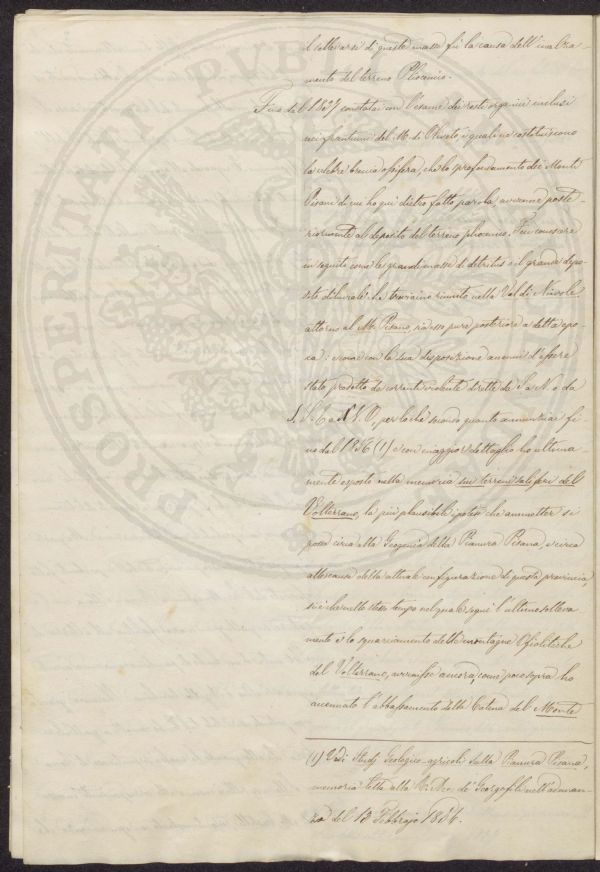 il sollevarsi di queste masse fu la causa dell'inalza-
mento del terreno Pliocenico.
Fino dal 1857 constatai con l'esame dei resti organici inclusi
nei frantumi del M. di Oliveto, i quali ne costituiscono
la celebre breccia ossifera, che lo sprofondamento dei Monti
Pisani di cui ho qui dietro fatto parola, avvenne poste-
riormente al deposito del terreno pliocenico. Feci conoscere
in seguito come le grandi masse di detritus e il grande depo-
sito diluviale che troviamo riunito nella Val di Nievole
attorno al M. Pisano, sia esso pure posteriore a detta epo-
ca: e come con la sua disposizione annunzi d'essere
stato prodotto da correnti violente dirette da S. a N. e da
S. S. E. a N. N. O, per lo chè secondo quanto annunziai fi-
no dal 1856 (1) e con maggior dettaglio ho ultima-
mente esposto nella memoria sui terreni saliferi del
Volterrano, la più plausibile ipotesi che ammetter si
possa circa alla Geogenia della Pianura Pisana, e circa
alle cause della attuale configurazione di questa provincia,
si è che nello stesso tempo nel quale seguì l'ultimo solleva-
mento e lo squarciamento delle montagne Ofiolitiche
del Volterrano, avvenisse ancora, come poco sopra ho
accennato l'abbassamento della Catena del Monte
(1) Vedi Studj Geologico-agricoli sulla Pianura Pisana,
memoria letta alla R. Acc. de' Georgofili nell'adunan-
za del 13 Febbrajo 1856.
PROSPERITATI PVBLICAE